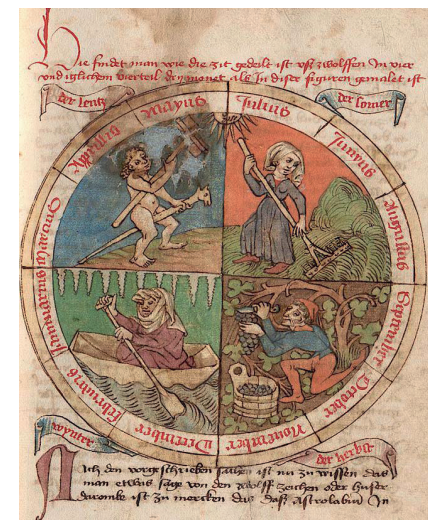 Hie findet man wie die zit gedeilt ist vsz zwolffen In vier
vnd iglichem vierteil dry monet als In diser figuren gemalet ist
der lentz
der somer
Mayus
Julius
Junyus
Augustus
September
October
November
December
Februarius
Januarius
wynter
der herbst
Nach den vorgeschrieben sachen ist nu zu wissen das
man etwas sage von den zwolff zeichen oder huser
darombe ist zu mercken das dasz Astrolabiu In